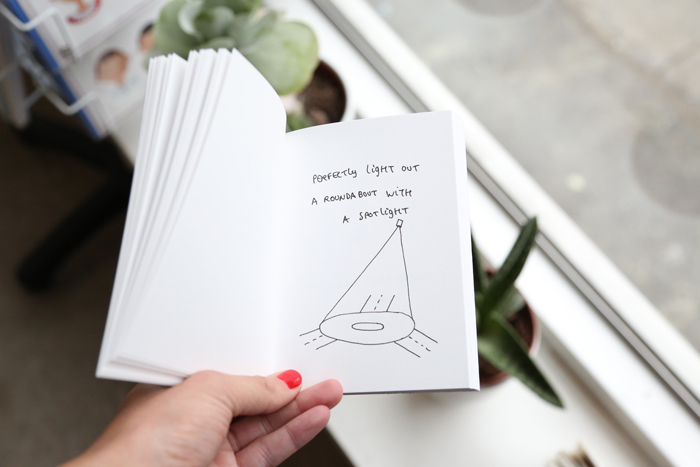 PERFECTLY LIGHT OUT
A ROUNDABOUT WITH
A SPOTLIGHT